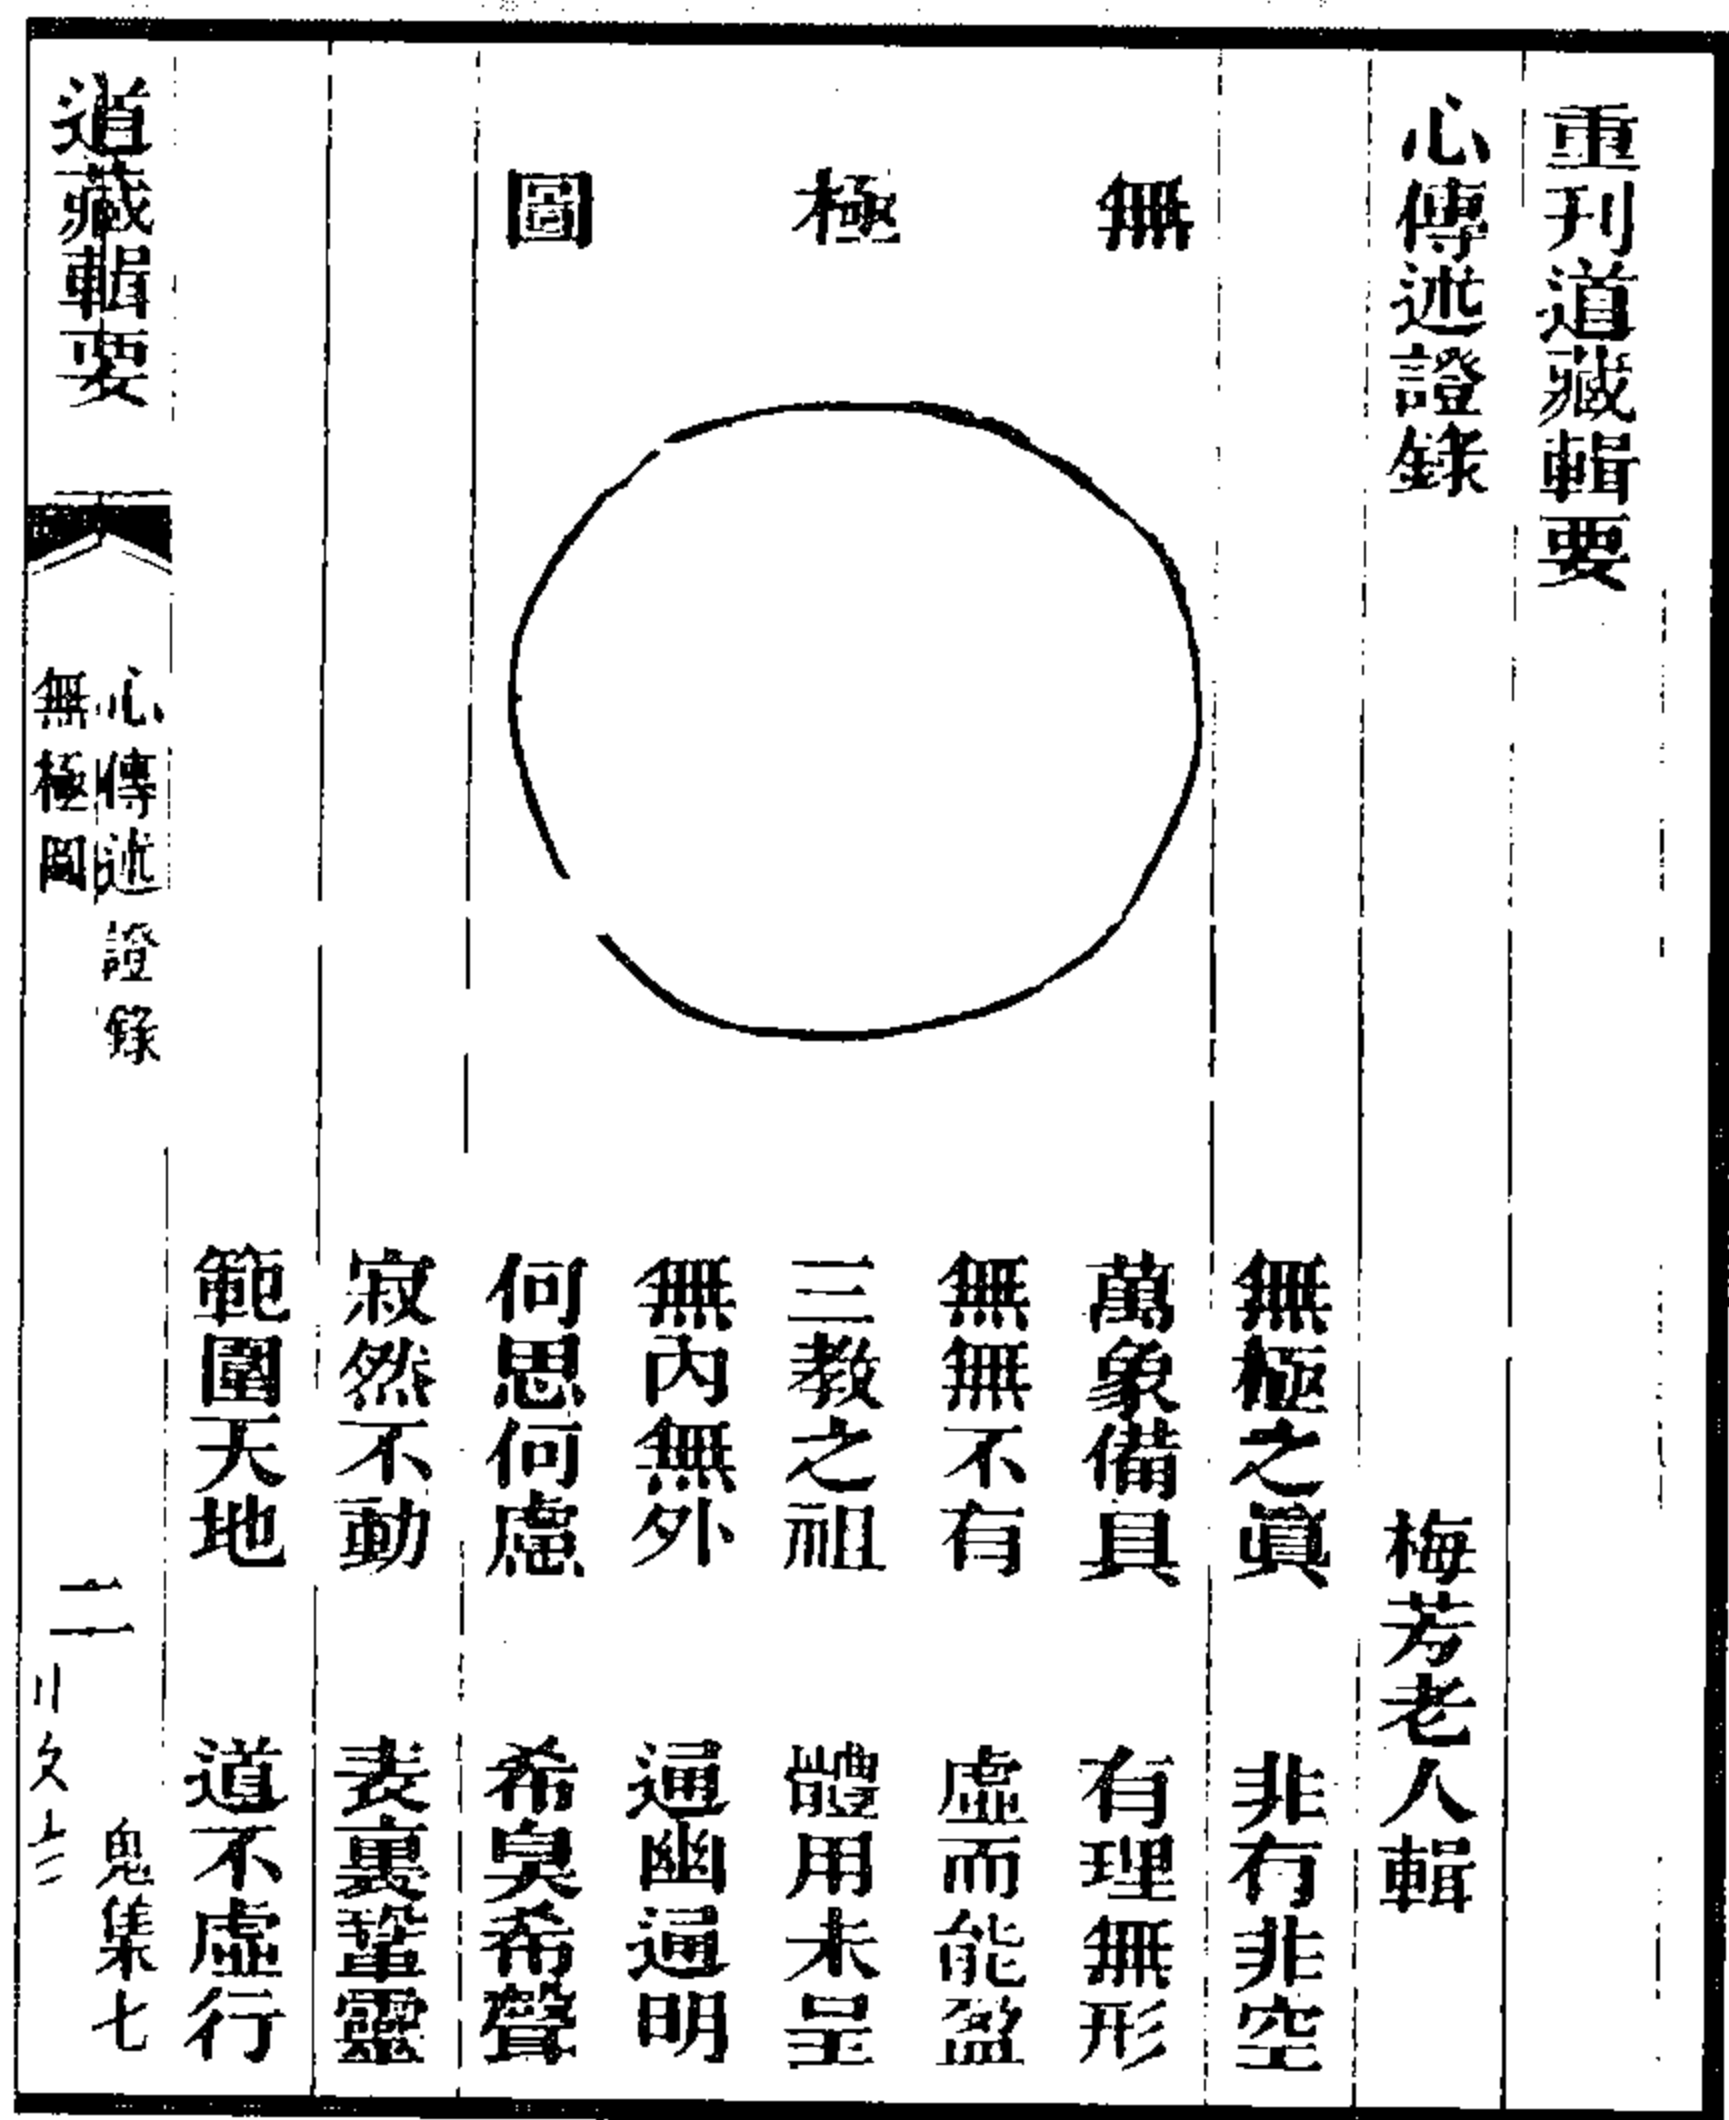 重刊道藏輯要
心傳述證錄
梅芳老人輯
無極圖
無極之眞　非有非空
萬象備具　有理無形
無無不有　虛而能盈
三教之祖　體用未呈
無內無外　通幽通明
何思何慮　希臭希聲
寂然不動　表裏鞏靈
範圍天地　道不虛行
道藏輯要
心傳述證錄
無極圖
二
鬼集七